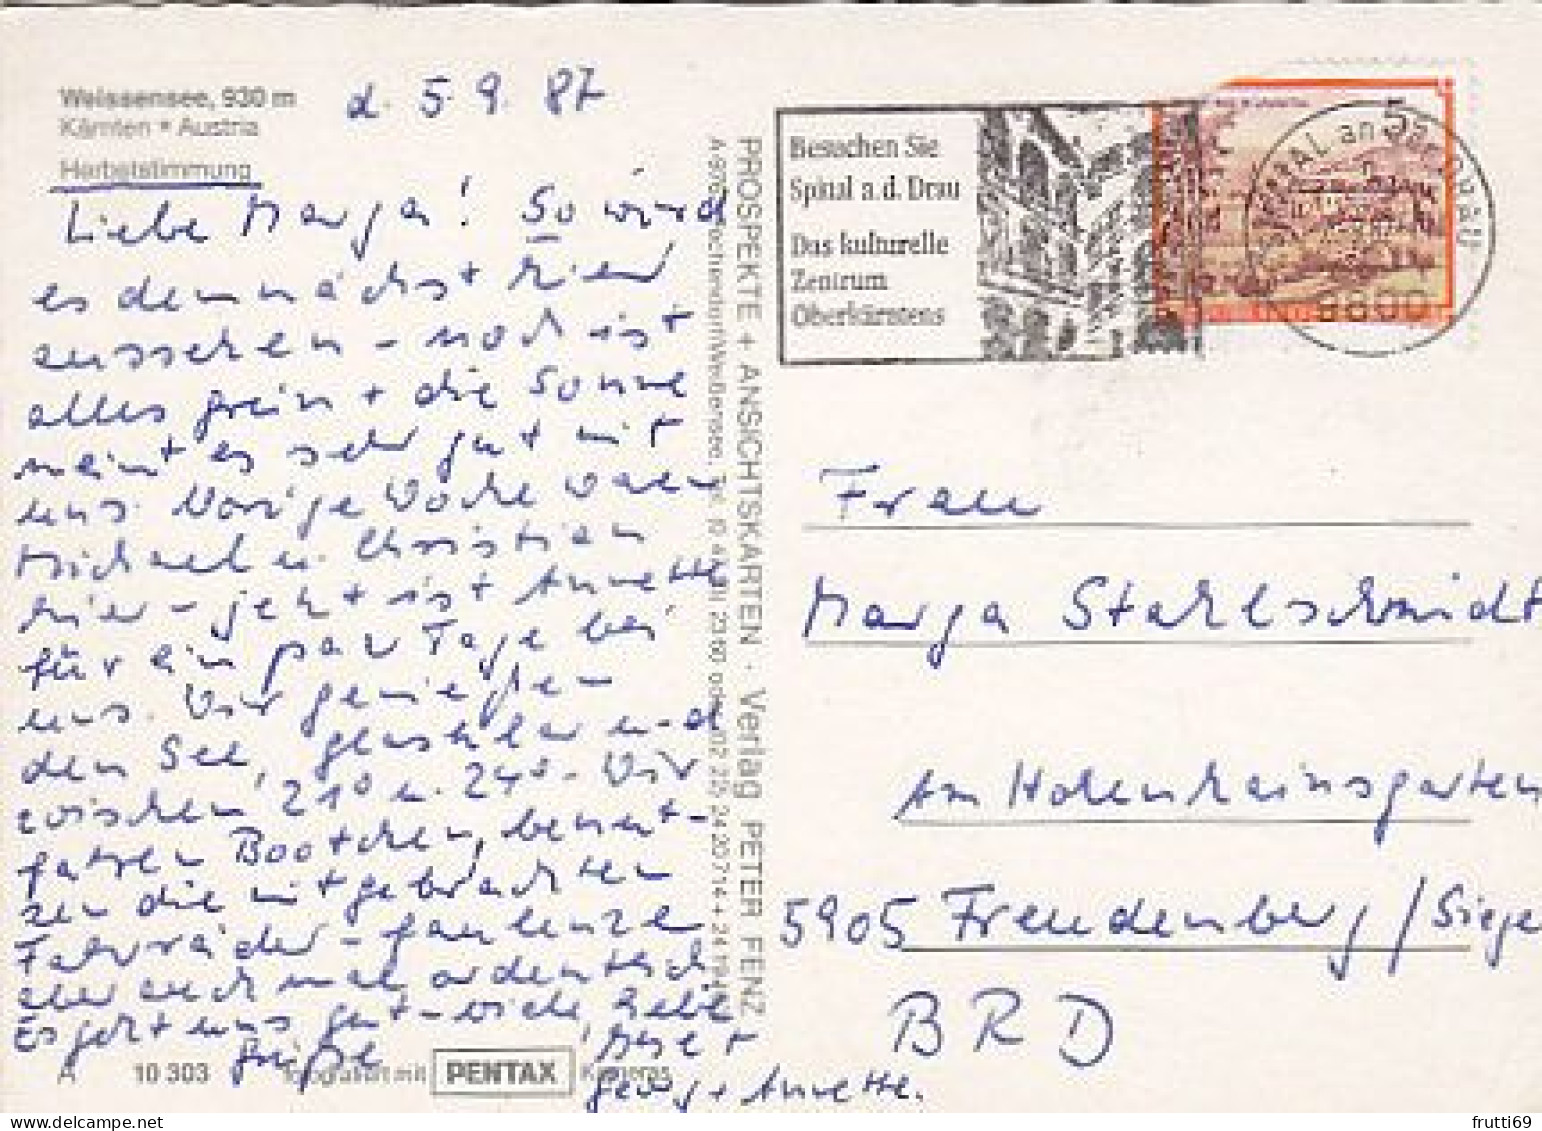 Weissensee, 930 m
Kärnten * Austria
Herbststimmung
d. 5.9.87
Liebe Marga! So wird
es demnächst hier
aussehen – noch ist
alles grün + die Sonne
meint es sehr gut mit
uns. Vorige Woche waren
Michael u. Christian
hier – jetzt ist Annette
für ein paar Tage bei
uns. Wir genießen
den See, glasklar und
zwischen 21° u. 24°. Wir
fahren Bootchen, benut-
zen die mitgebrachten
Fahrräder – faulenzen
aber auch mal ordentlich
Es geht uns gut – viele liebe
Grüße
Georg + Annette.
A 10 303
Fotografiert mit PENTAX Kameras
PROSPEKTE + ANSICHTSKARTEN · Verlag PETER FENZ
Besuchen Sie
Spittal a.d. Drau
Das kulturelle
Zentrum
Oberkärntens
SPITTAL an der DRAU
9800
5
Frau
Marga Stahlschmidt
Am Hohenhainsgarten
5905 Freudenberg/Siege
BRD
frutti69